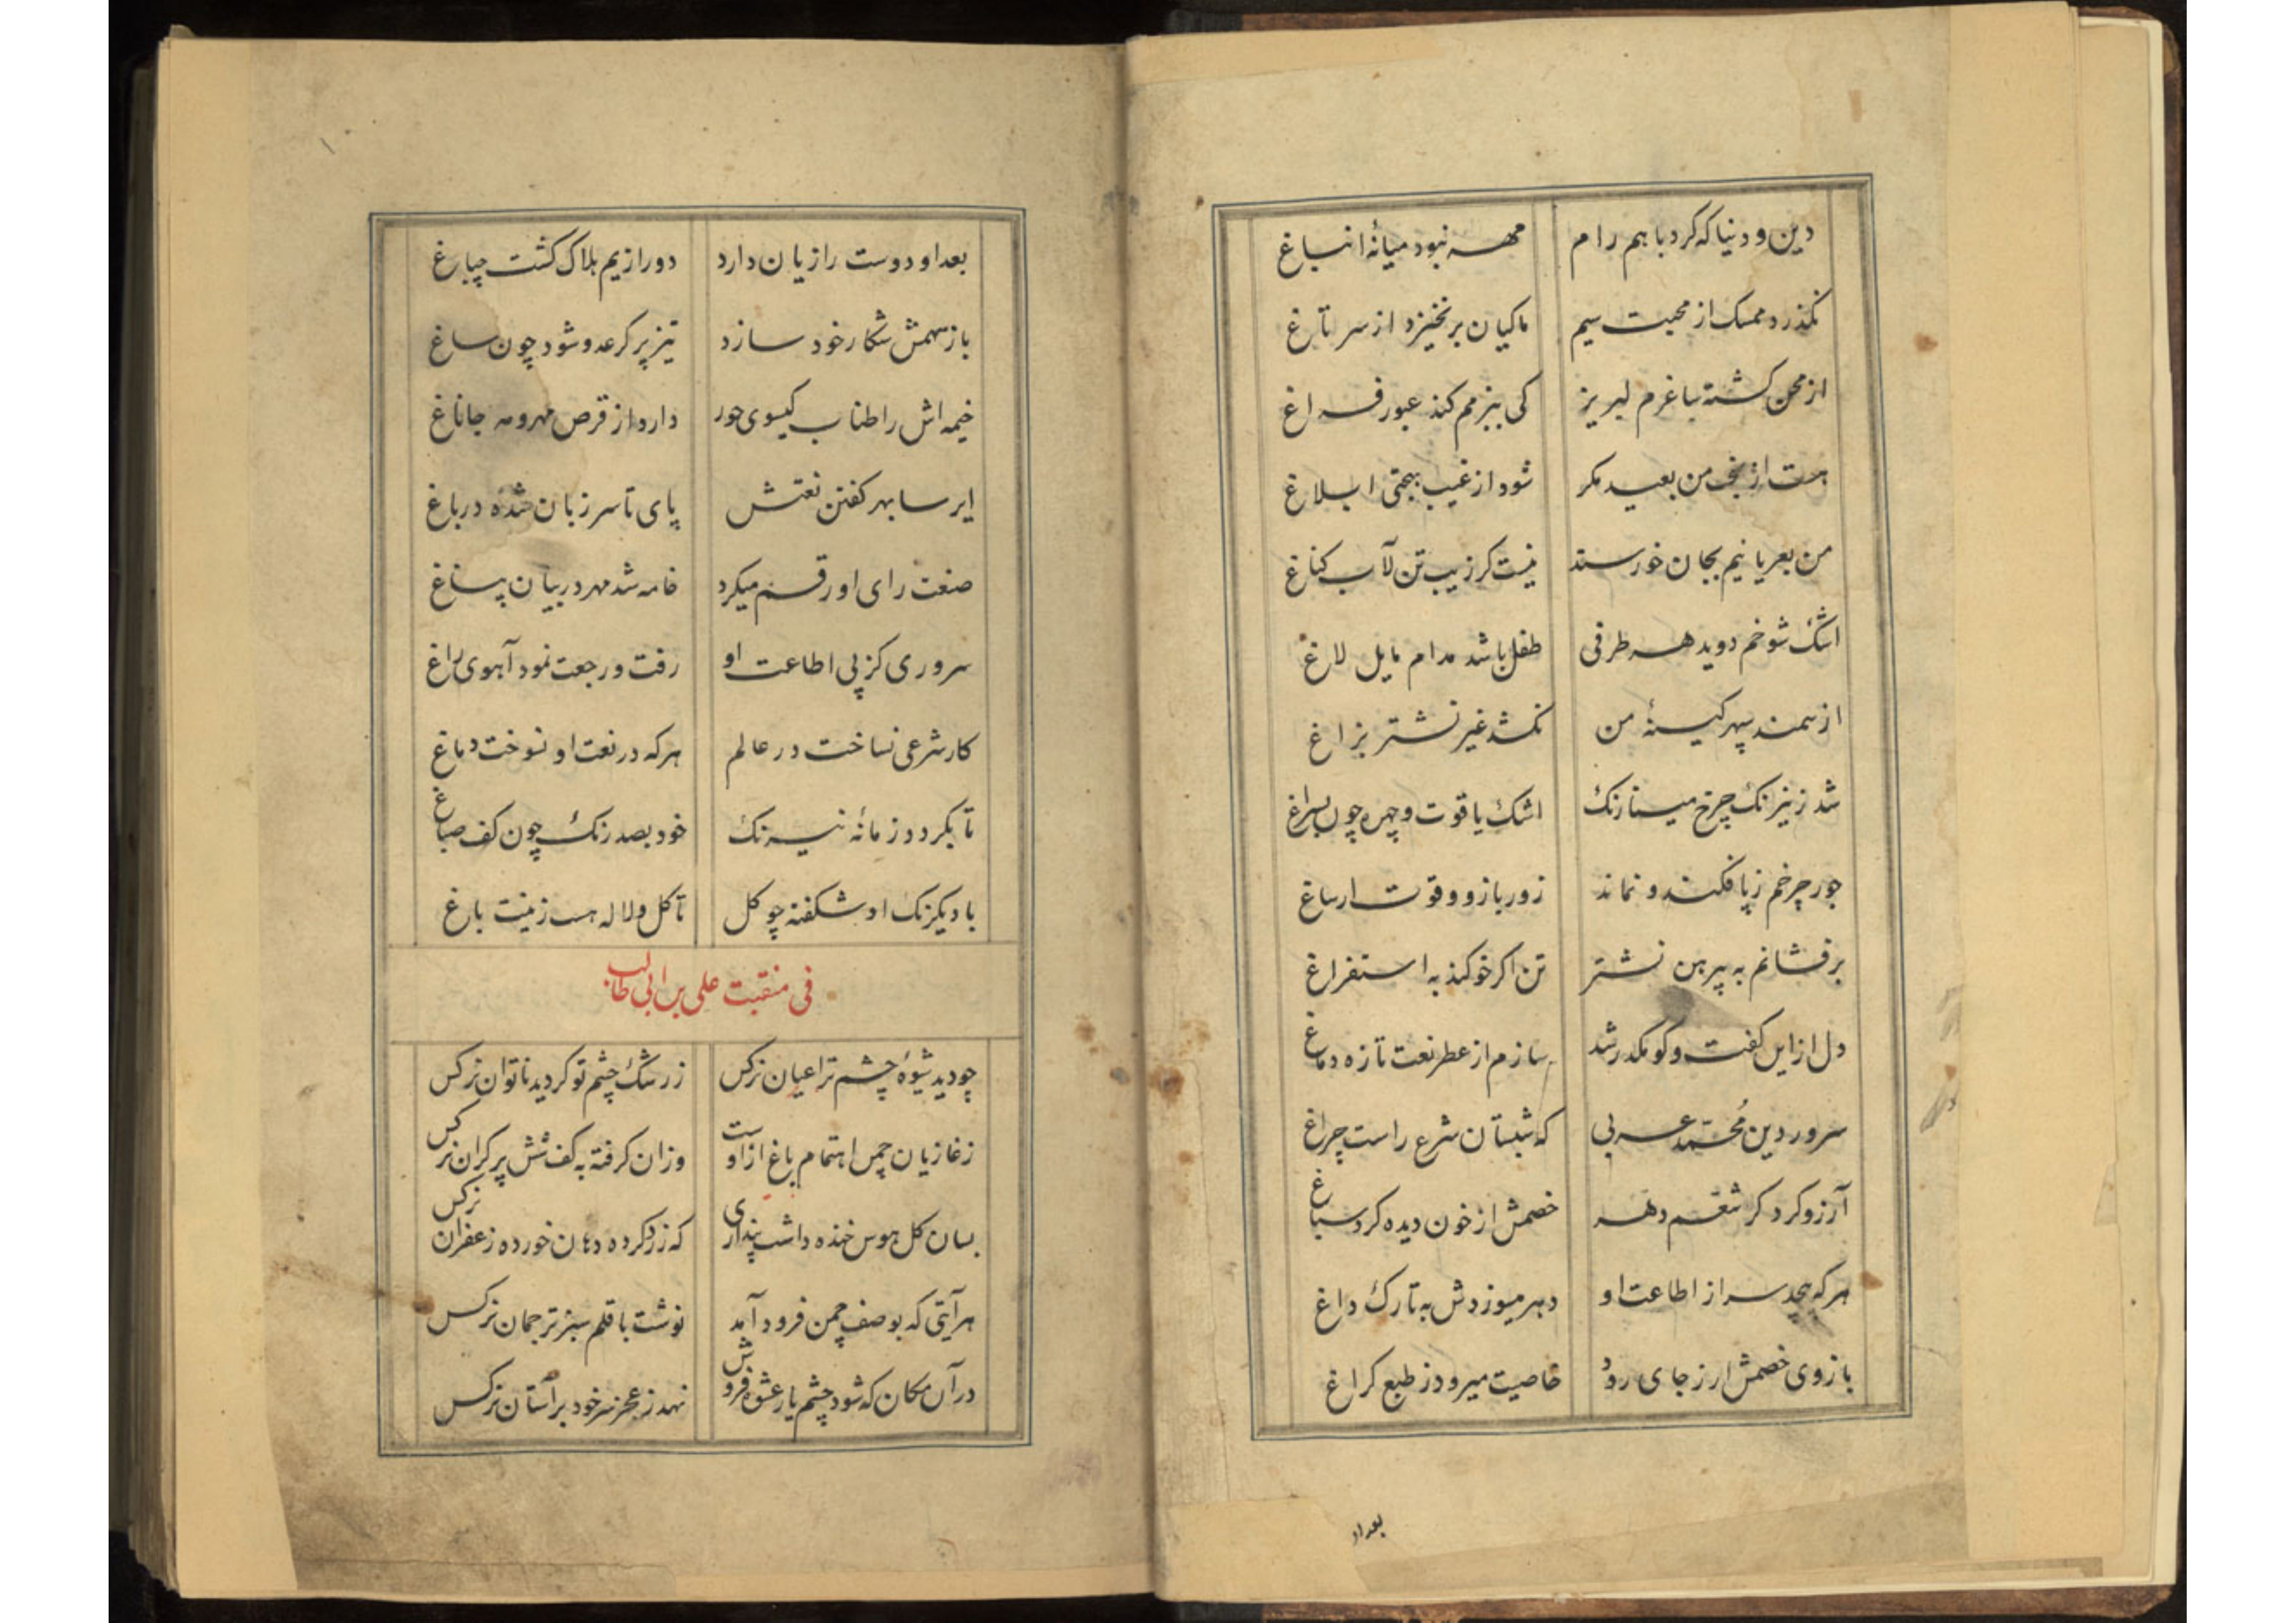 دین و دنیا که کرد با هم رام مهر نبود میانهٔ انباغ
نکذرد ممسک از محبت سیم ماکیان برنخیزد از سر تاغ
از محن کشته ساغرم لبریز کی ببزمم کند عبور فراغ
هست از بخت من بعید مکر شود از غیب بهجتی ابلاغ
من بعریانیم بجان خورسند نیست کر زیب تن لآب کناغ
اشک شوخم دوید هر طرفی طفل باشد مدام مایل لاغ
از سمند سپهر کیسهٔ من نکشد غیر نشتر بزاغ
شد ز نیرنک چرخ مینا رنک اشک یاقوت و چهره چون
جور چرخم ز پا فکند و نماند زور بازو و قوت ارساغ
برفشانم به پیرهن نشتر تن اکر خو کند به استفراغ
دل از این کفت و کو مکدر شد سازم از عطر نعت تازه دماغ
سرور دین مُحمّد عربی که شبستان شرع راست چراغ
آرزو کرد کر شقم دهد خصمش از خون دیده کرد سباغ
هرکه پیچد سر از اطاعت او دهر میوزدش به تارک داغ
بازوی خصمش ار ز جای رود خاصیت میرود ز طبع کراغ
بعد او
بعد او دوست را زیان دارد دور از یم هلاک کشت چباغ
باز سهمش شکار خود سازد تیز پر کر عدو شود چون ساغ
خیمه اش را طناب کیسوی حور دارد از قرص مهر و مه جاناغ
ایرسا بهر کفتن نعتش پای تا سر زبان شده در باغ
صنعت رای او رقم میکرد خامه شد مهر در بیان پساغ
سروری کز پی اطاعت او رفت و رجعت نمود آهوی راغ
کار شرعی نساخت در عالم هرکه در نعت او نسوخت دماغ
تا بکردد زمانهٔ نیرنک خود بصد رنک چون کف صباغ
باد یکرنک او شکفته چو کل تا کل و لاله هست زینت باغ
فی منقبت علی بن ابی طالب
چو دید شیوهٔ چشم ترا عیان نرکس ز رشک چشم تو کردید ناتوان نرکس
ز غازیان چمن اهتمام باغ از اوست وزان کرفته به کف شش پر کران نرکس
بسان کل هوس خنده داشت پنداری که زرد کرده دهان خورده زعفران نرکس
هر آیتی که بوصف چمن فرود آمد نوشت با قلم سبز ترجمان نرکس
در آن مکان که شود چشم یار عشوه فروش نهد ز عجز سر خود بر آستان نرکس